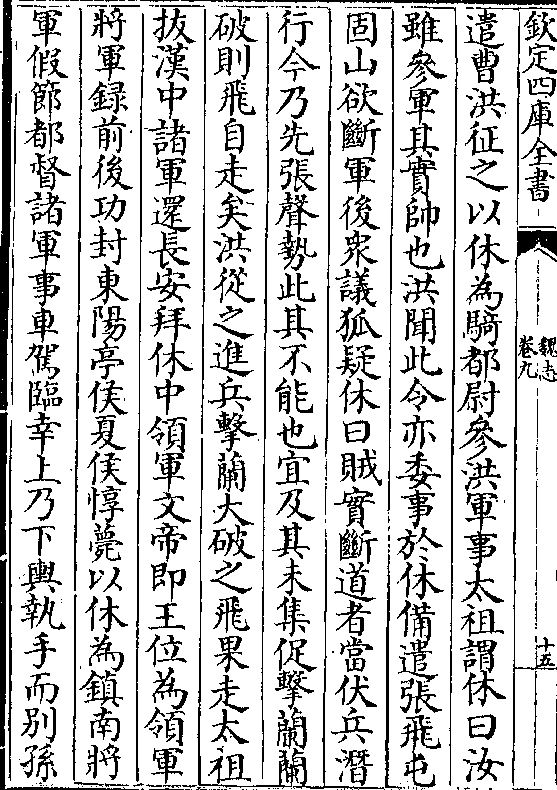 欽定四庫全書
魏志
卷九
十五
遣曹洪征之以休為騎都尉參洪軍事太祖謂休曰汝
雖參軍其實帥也洪聞此令亦委事於休備遣張飛屯
固山欲斷軍後衆議狐疑休曰賊實斷道者當伏兵潛
行今乃先張聲勢此其不能也宜及其未集促擊蘭蘭
破則飛自走矣洪從之進兵擊蘭大破之飛果走太祖
拔漢中諸軍還長安拜休中領軍文帝即王位為領軍
將軍録前後功封東陽亭侯夏侯惇薨以休為鎮南將
軍假節都督諸軍事車駕臨幸上乃下輿執手而别孫